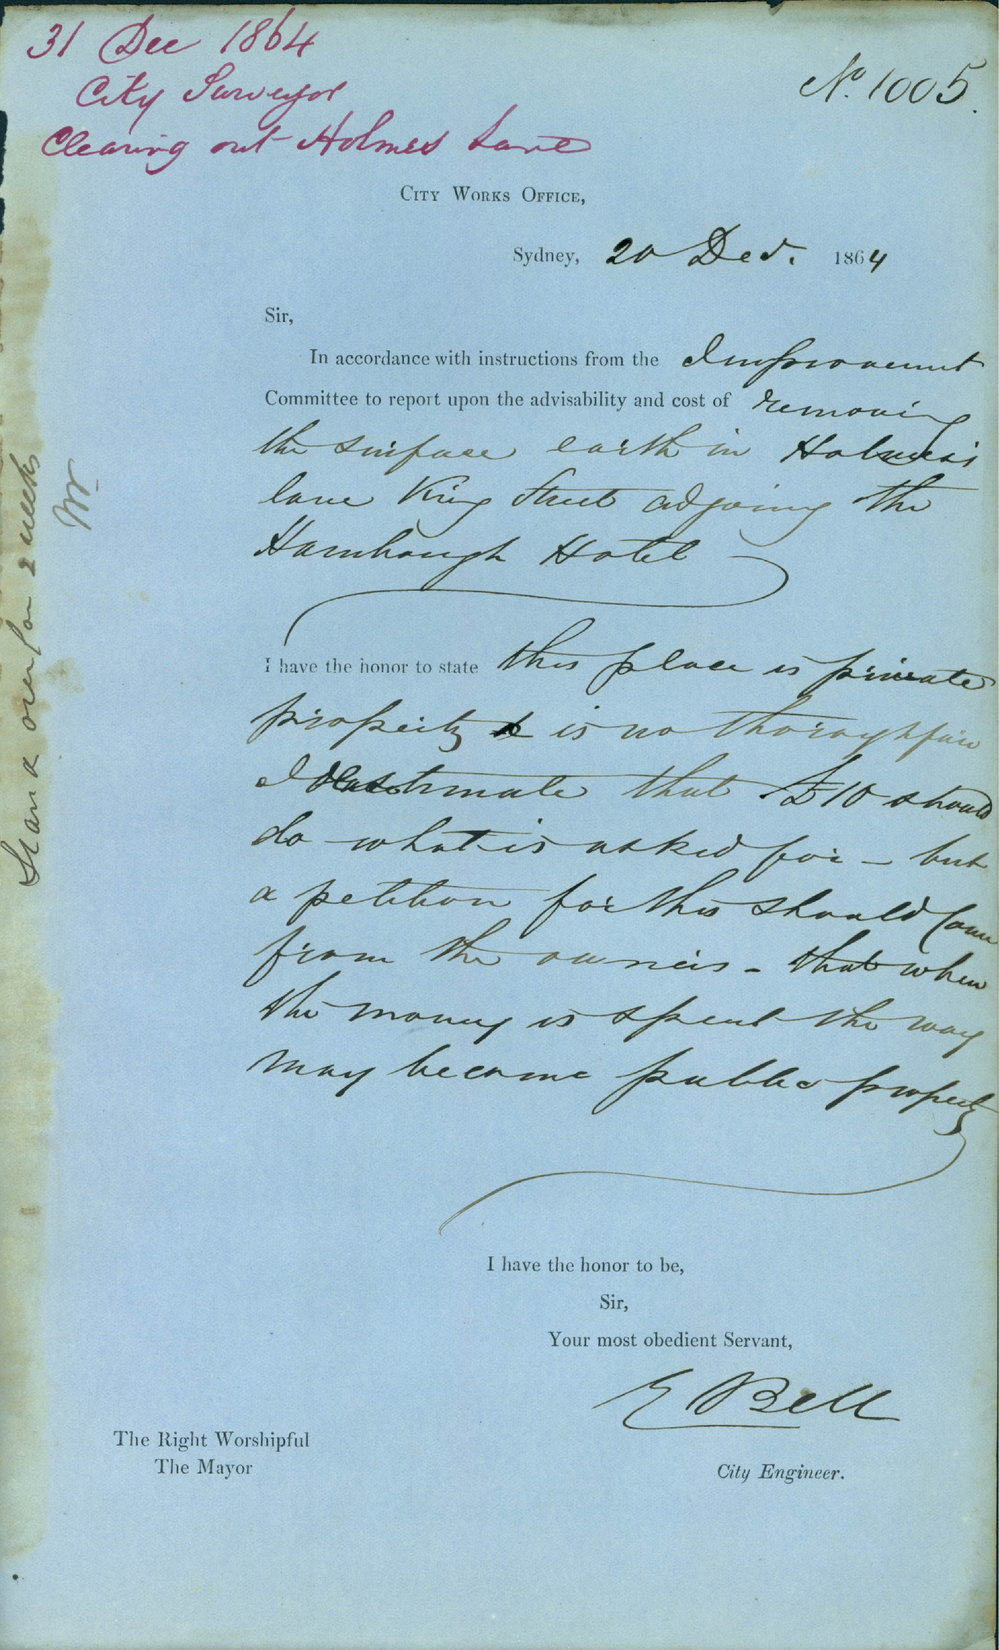 31 Dec 1864
City Surveyor
Clearing out Holmes Lane
No. 1005.
CITY WORKS OFFICE,
Sydney, 20 Dec. 1864
Sir,
In accordance with instructions from the Improvement
Committee to report upon the advisability and cost of removing
the surface earth in Holmes's
lane King Street adjoing the
Hotel
I have the honor to state this place is private
property & is no thoroughfare
I estimate that £10 should
do what is asked for – but
a petition for this should come
from the owners – that when
the money is spent the way
may become public property
I have the honor to be,
Sir,
Your most obedient Servant,
E Bell
City Engineer.
The Right Worshipful
The Mayor
Stand over for 2 weeks